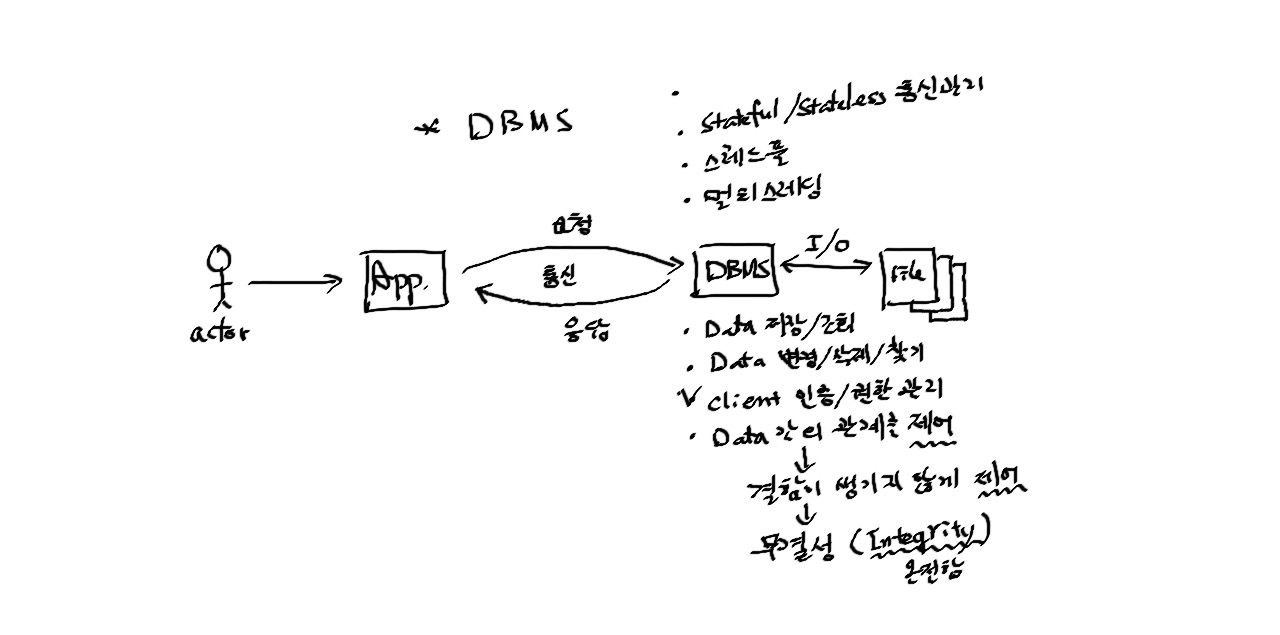 * DBMS
• Stateful/Stateless 통신관리
• 스레드풀
• 멀티스레딩
요청
actor
App.
통신
DBMS
I/O
file
응답
• Data 저장/조회
• Data 변경/삭제/찾기
✓ client 인증/권한 관리
• Data 간의 관계를 제어
↓
결함이 생기지 않게 제어
↓
무결성 (Integrity)
온전함